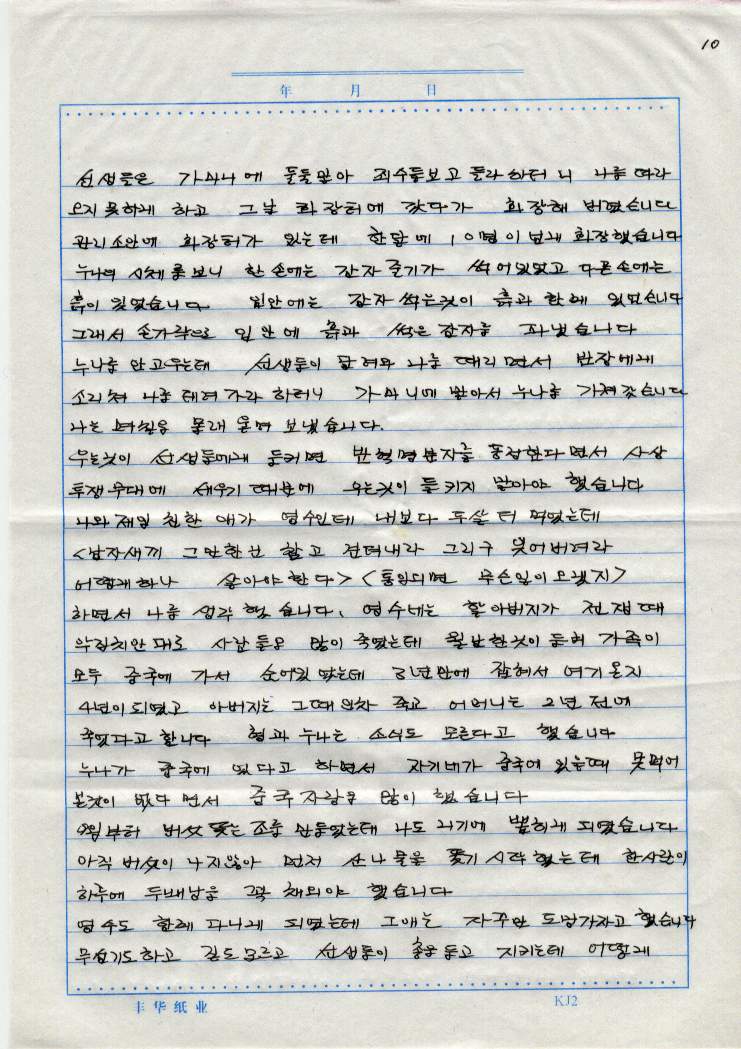 10
年 月 日
선생들은 가마니에 둘둘말아 죄수들보고 들라 하더 니 나를 따라
오지 못하게 하고 그날 화장터에 갖다가 화장해 버렸습니다
관리소안에 화장터가 있는데 한달에 10명이 넘게 화장했습니다
누나의 시체를 보니 한 손에는 감자 줄기가 쥐여있었고 다른손에는
흙이 있었습니다. 입안에는 감자 썩은것이 흙과 함께 있었습니다
그래서 손가락으로 입 안에 흙과 썩은 감자를 파냈습니다
누나를 안고우는데 선생들이 달려와 나를 때리면서 반장에게
소리쳐 나를 데려가라 하더니 가마니에 말아서 누나를 가져갔습니다
나는 며칠을 몰래 울며 보냈습니다.
우는것이 선생들에게 들키면 반혁명분자를 동정한다 면서 사상
투쟁무대에 세우기 때문에 우는것이 들키지 말아야 했습니다
나와 제일 친한 애가 영수인데 내보다 두살 더 먹었는데
<남자새끼 그만한건 참고 견뎌내라 그리구 잊어버려라
어떻게하나 살아야한다> <통일되면 무슨일이 오겠지>
하면서 나를 생각 했습니다. 영수네는 할아버지가 전쟁때
치안대로 사람들을 많이 죽였는데 월남한것이 들켜 가족이
모두 중국에 가서 숨어있었는데 3년만에 잡혀서 여기 온지
4년이 되였고 아버지는 그때 인차 죽고 어머니는 2년 전에
죽었다고 합니다 형과 누나는 소식도 모른다고 했습니다
누나가 중국에 있다고 하면서 자기네가 중국에 있을때 못먹어
본것이 없다 면서 중국자랑을 많이 했습니다
월부터 버섯 뜯는 조를 만들었는데 나도 거기에 뽑히게 되였습니다
아직 버섯이 나지않아 먼저 산나물을 뜯기 시작 했는데 한사람이
하루에 두배낭을 꼭 채워야 했습니다
영수도 함께 다니게 되였는데 그애는 자꾸만 도망가자고 했습니다
무섭기도하고 길도 모르고 선생들이 총을 들고 지키는데 어떻게
丰华纸业
KJ2